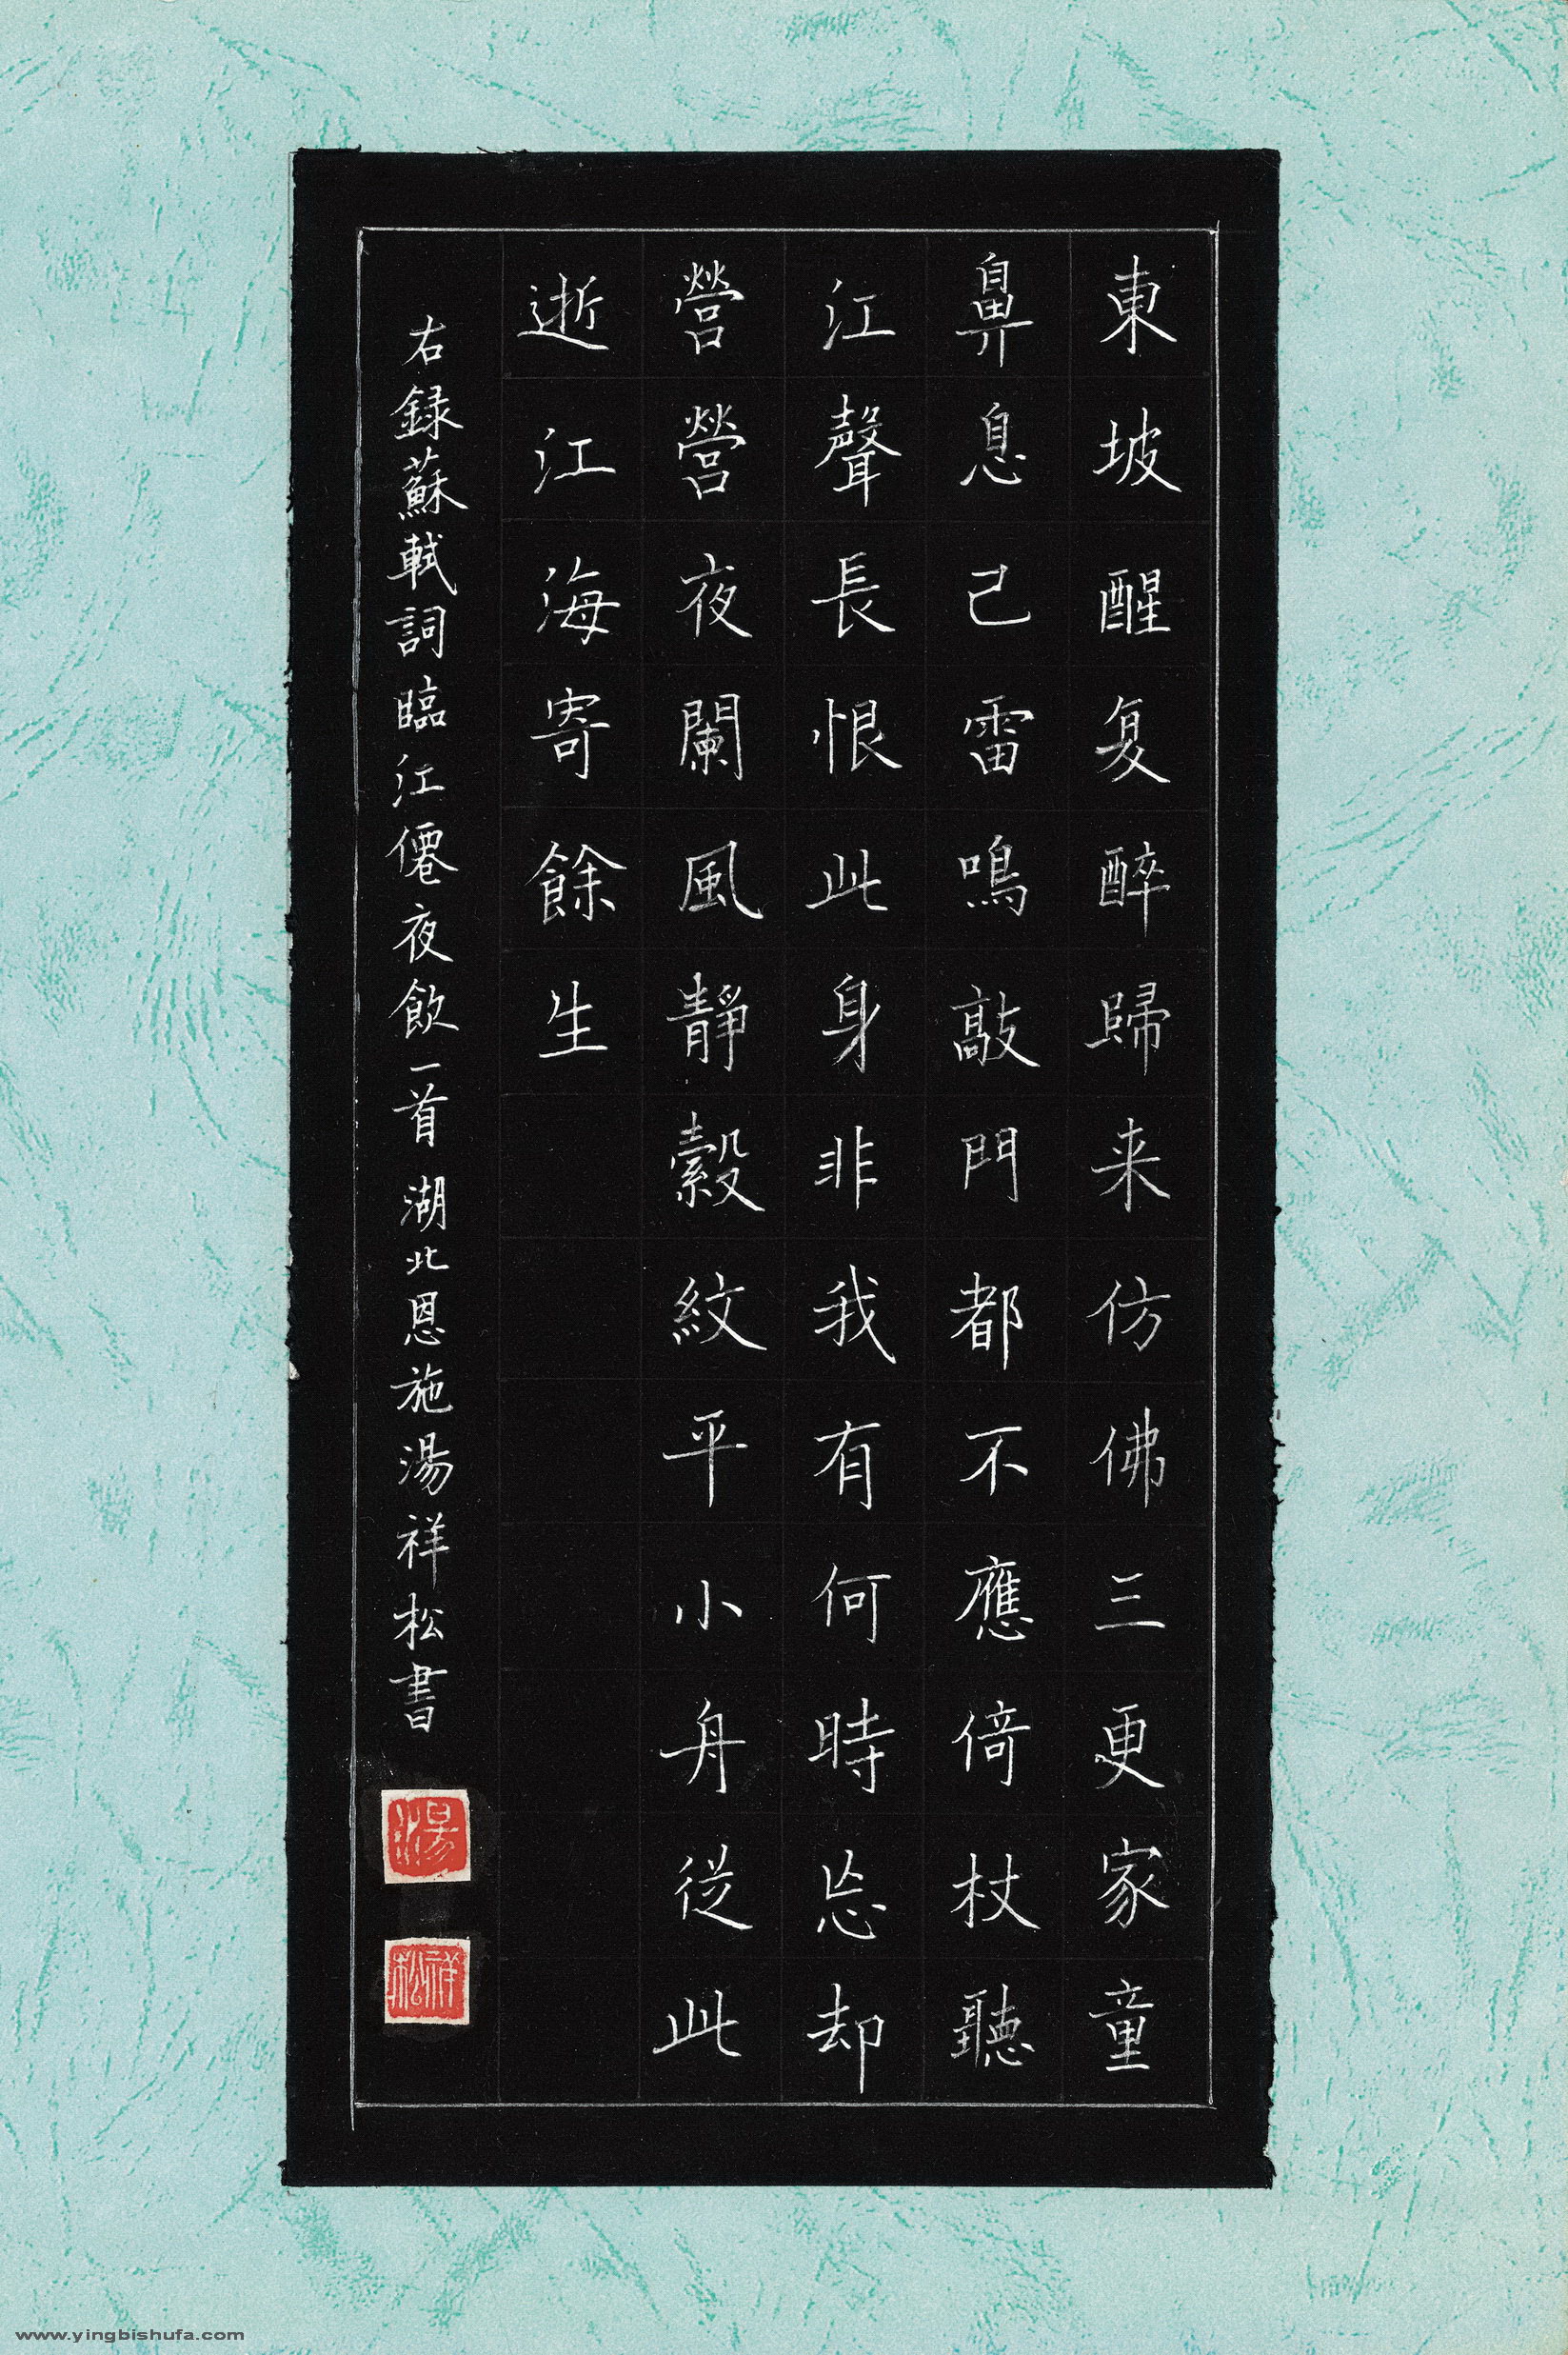 東坡醒复醉歸来仿佛三更家童
鼻息己雷鳴敲門都不應倚杖聽
江聲長恨此身非我有何時忘却
營營夜闌風靜縠紋平小舟從此
逝江海寄餘生
右録蘇軾詞臨江僊夜飲一首湖北恩施湯祥松書
湯
祥松
www.yingbishufa.com